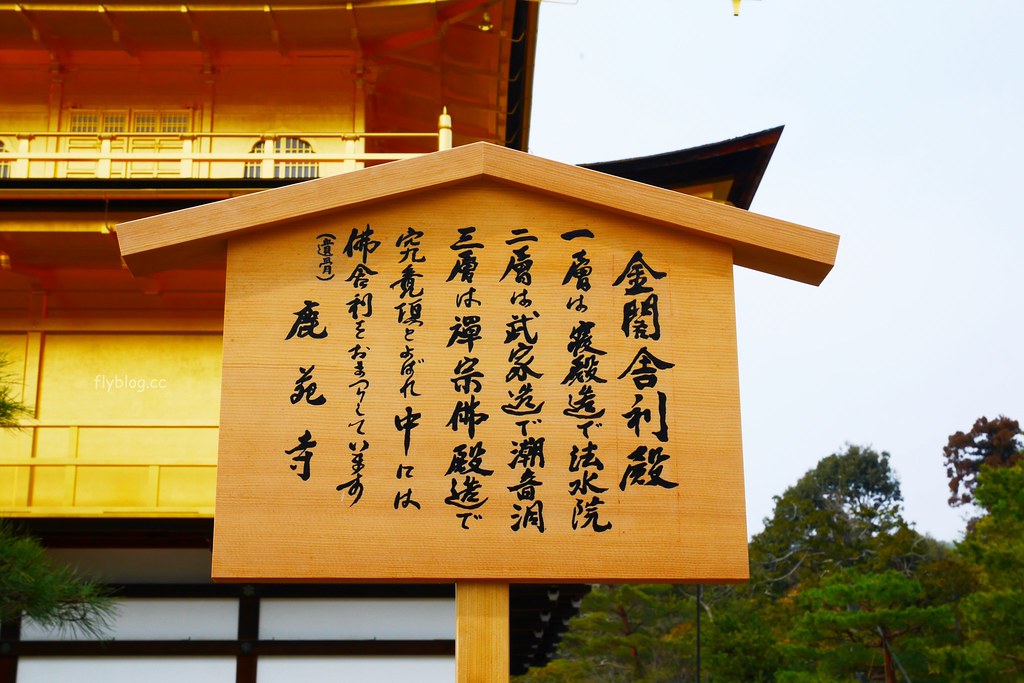 金閣舎利殿
一層は寝殿造で法水院
二層は武家造で潮音洞
三層は禪宗佛殿造で
究竟頂とよばれ中には
佛舎利をおまつりしています
(遺骨)
鹿苑寺
flyblog.cc